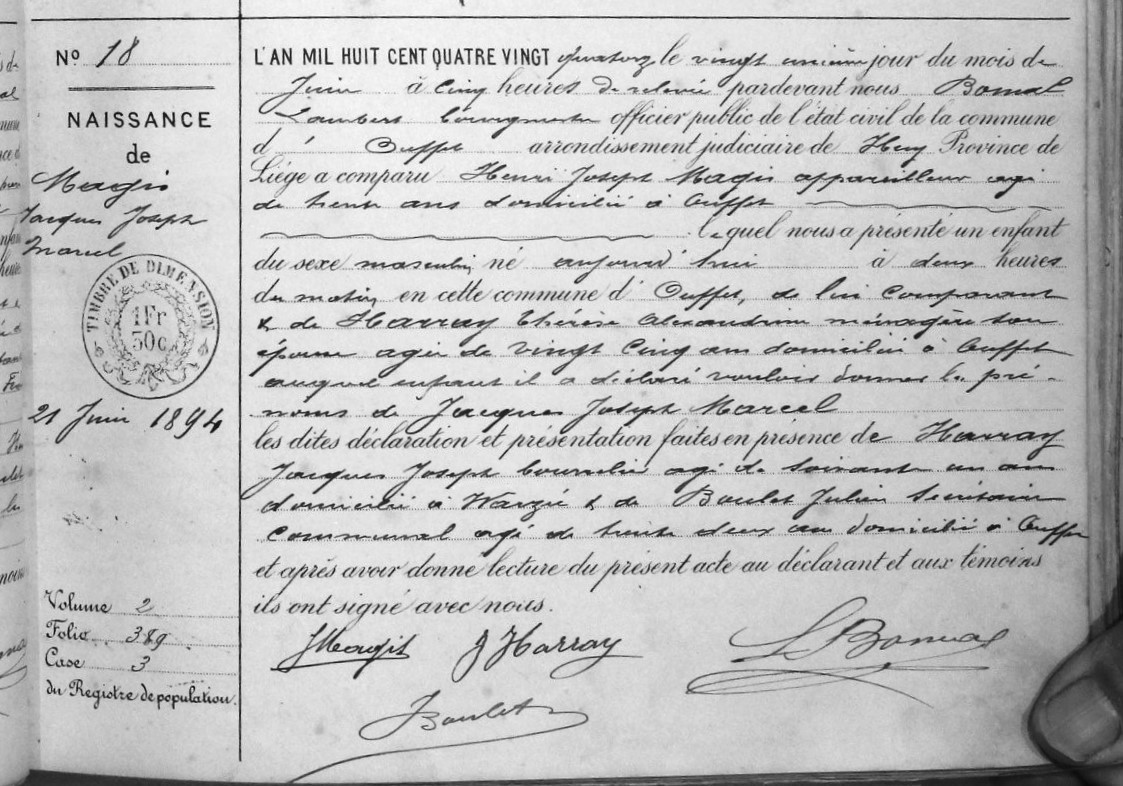 Nº 18
NAISSANCE
de
Magis
Jacques Joseph
Marcel
TIMBRE DE DIMENSION
1Fr
50c
21 Juin 1894
Volume 2
Folio 389
Case 3
du Registre de population.
L'AN MIL HUIT CENT QUATRE VINGT quatorze le vingt unième jour du mois de
Juin à cinq heures de relevée pardevant nous Bomal
Lambert bourgmestre officier public de l'état civil de la commune
d' Ouffet arrondissement judiciaire de Huy Province de
Liége a comparu Henri Joseph Magis appareilleur agé
de trente ans domicilié à Ouffet
lequel nous a présenté un enfant
du sexe masculin né aujourd'hui à deux heures
du matin en cette commune d' Ouffet, de lui comparant
& de Harray Thérèse Alexandrine ménagère son
épouse agée de vingt cinq ans domiciliée à Ouffet
auquel enfant il a déclaré vouloir donner les pré-
noms de Jacques Joseph Marcel
les dites déclaration et présentation faites en présence de Harray
Jacques Joseph bourrelier agé de soixante un ans
domicilié à Warzée & de Boulet Julien Secrétaire
communal agé de trente deux ans domicilié à Ouffet
et après avoir donné lecture du présent acte au déclarant et aux témoins
ils ont signé avec nous.
HMagis J Harray L Bomal
J Boulet